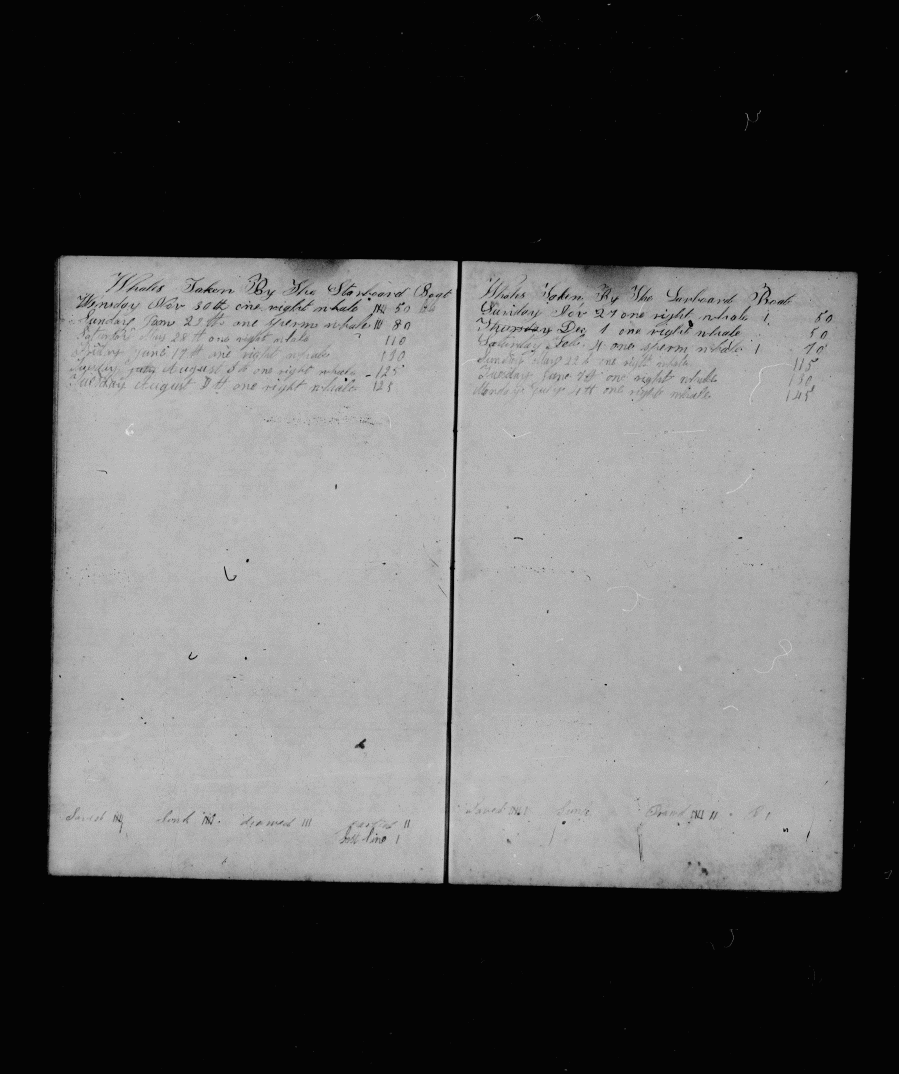 Whales Taken By The Starboard Boat
Wensday Nov 30th one right whale 50
Sunday Jan 29th one sperm whale 80
Saturday May 28th one right whale 110
Friday June 17th one right whale 130
August 5th one right whale 125
Tuesday August one right whale 125
Saved
sunk drawed III parted II
line I
Whales Taken By The Larboard Boat
Sunday Nov 27 one right whale 1 50
Thursday Dec 1 one right whale 50
Saturday Feb. 4 one sperm whale 1 90
Sunday May 22th one right whale 115
Tuesday June 7th one right whale 130
Monday July 4th one right whale 145
Saved